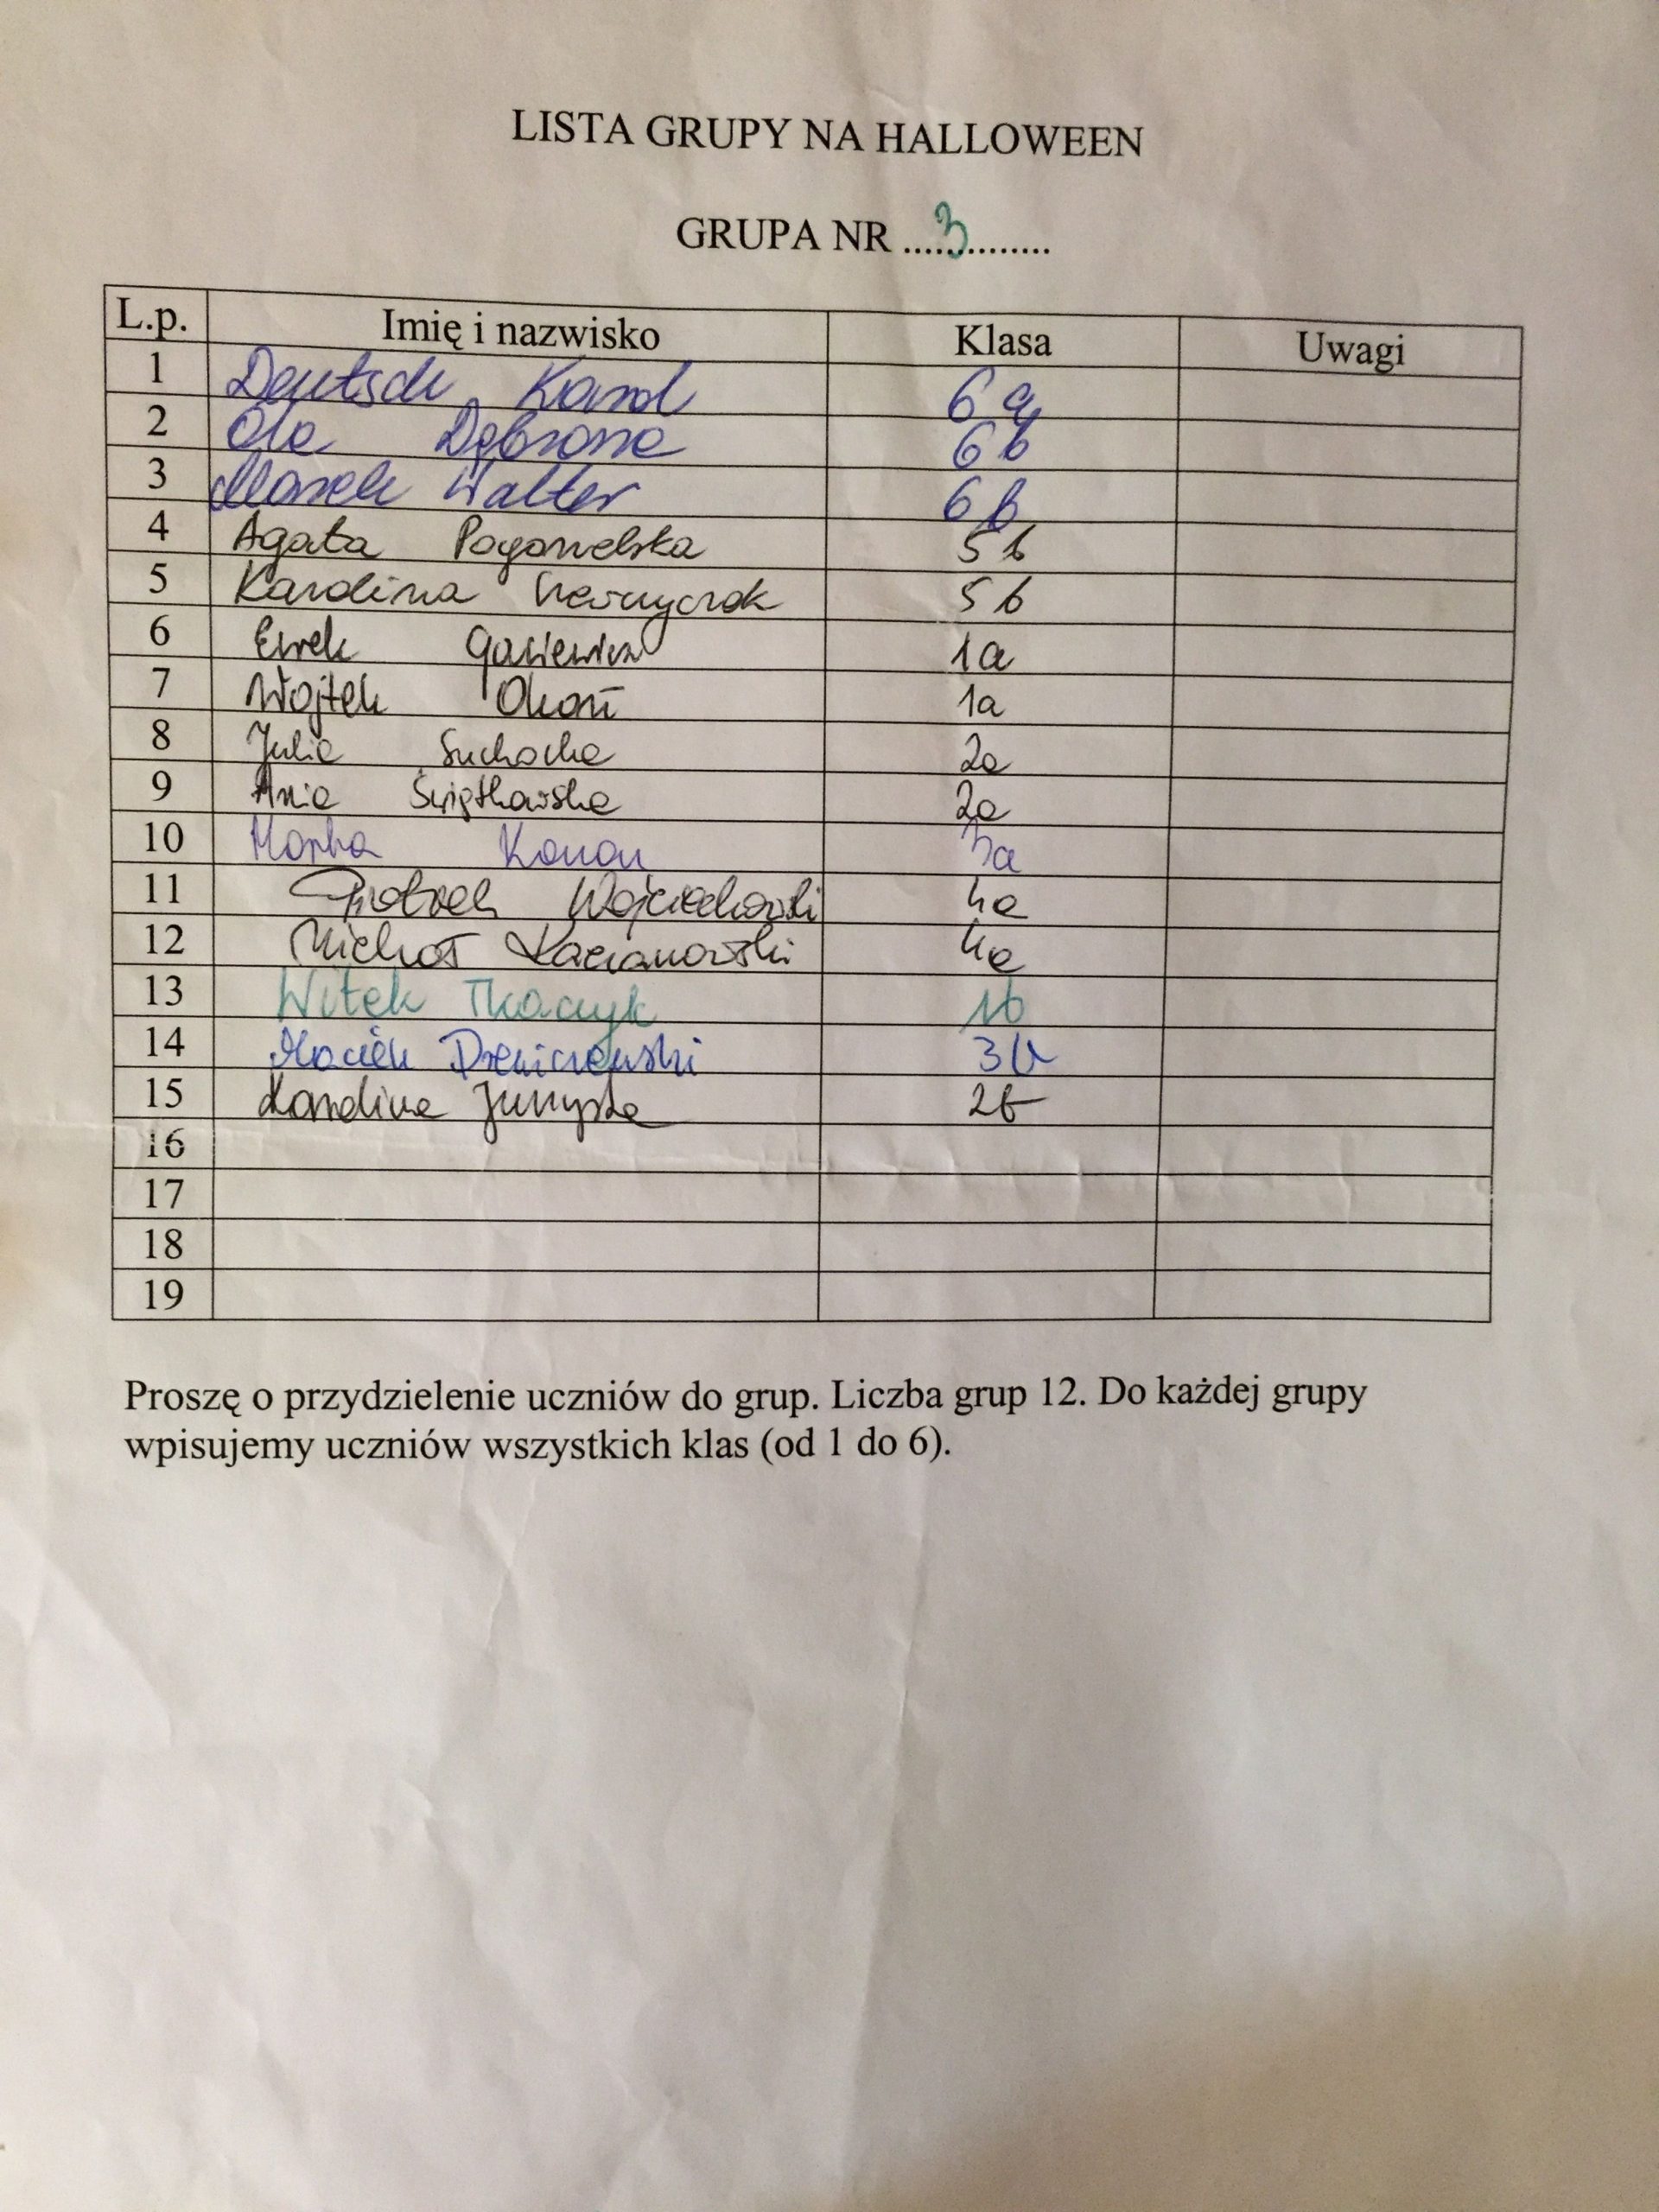 LISTA GRUPY NA HALLOWEEN
GRUPA NR ....3..............
L.p. Imię i nazwisko Klasa Uwagi
1 Deutsch Karol 6 a
2 Ola 6 b
3 Marek Walter 6 b
4 Agata Pogorzelska 5 b
5 Karolina 5 b
6 1a
7 Wojtek Okoń 1a
8 Julia Suchocka 2a
9 Ania Świątkowska 2a
10 Marta 3a
11 Piotrek Wojciechowski 4a
12 Michał 4a
13 Witek Tkaczyk 1b
14 Maciek 3b
15 Karolina 2b
16
17
18
19
Proszę o przydzielenie uczniów do grup. Liczba grup 12. Do każdej grupy
wpisujemy uczniów wszystkich klas (od 1 do 6).